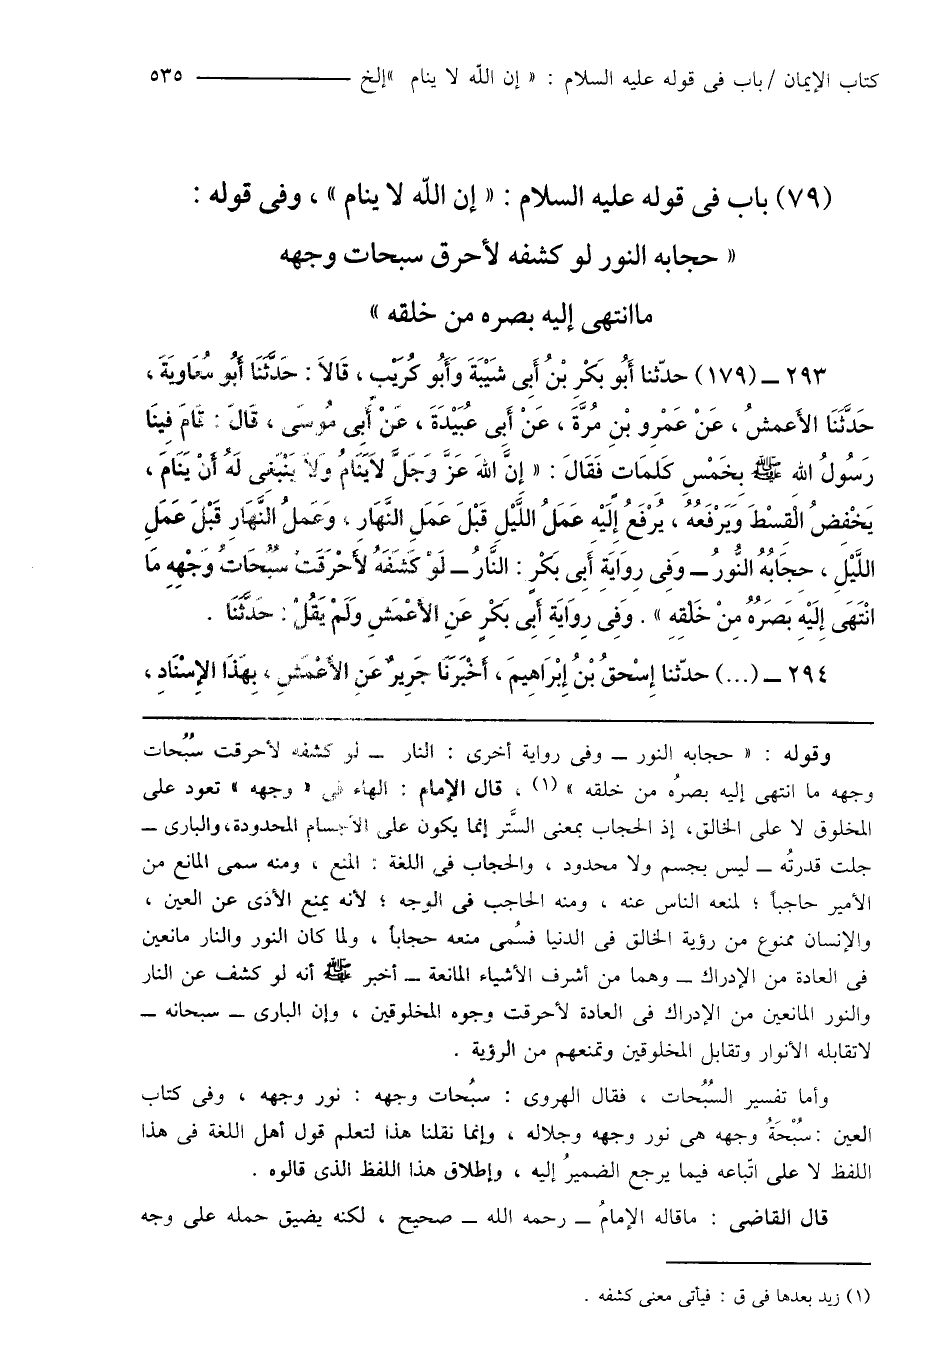 كتاب الإيمان / باب فى قوله عليه السلام : « إن الله لا ينام » إلخ ــــــــــ ٥٣٥
(٧٩) باب فى قوله عليه السلام : « إن الله لا ينام » ، وفى قوله :
« حجابه النور لو كشفه لأحرق سبحات وجهه
ماانتهى إليه بصره من خلقه »
٢٩٣ ــ (١٧٩) حدّثنا أَبُو بَكْرِ بْنُ أَبِى شَيْبَةَ وَأَبُو كُرَيْبٍ ، قَالاَ : حَدَّثَنَا أَبُو مُعَاوِيَةَ ،
حَدَّثَنَا الأَعمشُ ، عَنْ عَمْرِو بْنِ مُرَّةَ ، عَنْ أَبِى عُبَيْدَةَ ، عَنْ أَبِى مُوسَى ، قَالَ : قَامَ فِينَا
رَسُولُ الله ﷺ بِخَمْسِ كَلِمَات فَقَالَ : « إِنَّ اللهَ عَزَّ وَجَلَّ لاَيَنَامُ وَلاَ يَنْبَغِى لَهُ أَنْ يَنَامَ ،
يَخْفِضُ الْقِسْطَ وَيَرْفَعُهُ ، يُرْفَعُ إِلَيْهِ عَمَلُ اللَّيْلِ قَبْلَ عَمَلِ النَّهَارِ ، وَعَمَلُ النَّهَارِ قَبْلَ عَمَلِ
اللَّيْلِ ، حِجَابُهُ النُّورُ ــ وَفِى رِوَايَةِ أَبِى بَكْرٍ : النَّارُ ــ لَوْ كَشَفَهُ لأَحْرَقَتْ سُبُحَاتُ وَجْهِهِ مَا
انْتَهَى إِلَيْهِ بَصَرُهُ مِنْ خَلْقِهِ » . وَفِى رِوَايَةِ أَبِى بَكْرٍ عَنِ الأَعْمَشِ وَلَمْ يَقُلْ : حَدَّثَنَا .
٢٩٤ ــ (...) حدّثنا إِسْحقُ بْنُ إِبْرَاهِيمَ ، أَخْبَرَنَا جَرِيرٌ عَنِ الأَعْمَشِ ، بِهَذَا الإِسْنَادِ ،
وقوله : « حجابه النور ــ وفى رواية أخرى : النار ــ لو كشفه لأحرقت سُبُحات
وجهه ما انتهى إليه بصرُه من خلقه » (١) ، قال الإمام : الهاء فى « وجهه » تعود على
المخلوق لا على الخالق، إذ الحجاب بمعنى السَّتر إنما يكون على الأجسام المحدودة، والبارى ــ
جلت قدرتُه ــ ليس بجسم ولا محدود ، والحجاب فى اللغة : المنع ، ومنه سمى المانع من
الأمير حاجباً ؛ لمنعه الناس عنه ، ومنه الحاجب فى الوجه ؛ لأنه يمنع الأذى عن العين ،
والإنسان ممنوع من رؤية الخالق فى الدنيا فسُمى منعه حجاباً ، ولما كان النور والنار مانعين
فى العادة من الإدراك ــ وهما من أشرف الأشياء المانعة ــ أخبر ﷺ أنه لو كشف عن النار
والنور المانعين من الإدراك فى العادة لأحرقت وجوه المخلوقين ، وإن البارى ــ سبحانه ــ
لاتقابله الأنوار وتقابل المخلوقين وتمنعهم من الرؤية .
وأما تفسير السُّبُحات ، فقال الهروى : سبُحات وجهه : نور وجهه ، وفى كتاب
العين : سُبْحَةُ وجهه هى نور وجهه وجلاله ، وإنما نقلنا هذا لتعلم قول أهل اللغة فى هذا
اللفظ لا على اتّباعه فيما يرجع الضميرُ إليه ، وإطلاق هذا اللفظ الذى قالوه .
قال القاضى : ماقاله الإمامُ ــ رحمه الله ــ صحيح ، لكنه يضيق حمله على وجه
(١) زيد بعدها فى ق : فيأتى معنى كشفه .